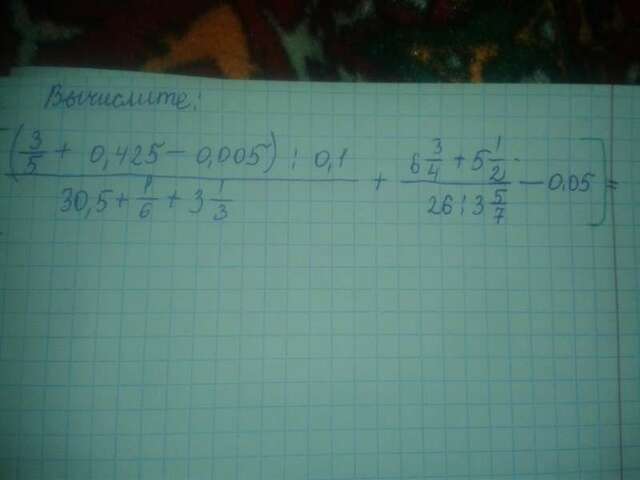 Вычислите:
(3/5 + 0,425 - 0,005) : 0,1 / 30,5 + 1/6 + 3 1/3 + 6 3/4 + 5 1/2 / 26 : 3 5/7 - 0,05] =